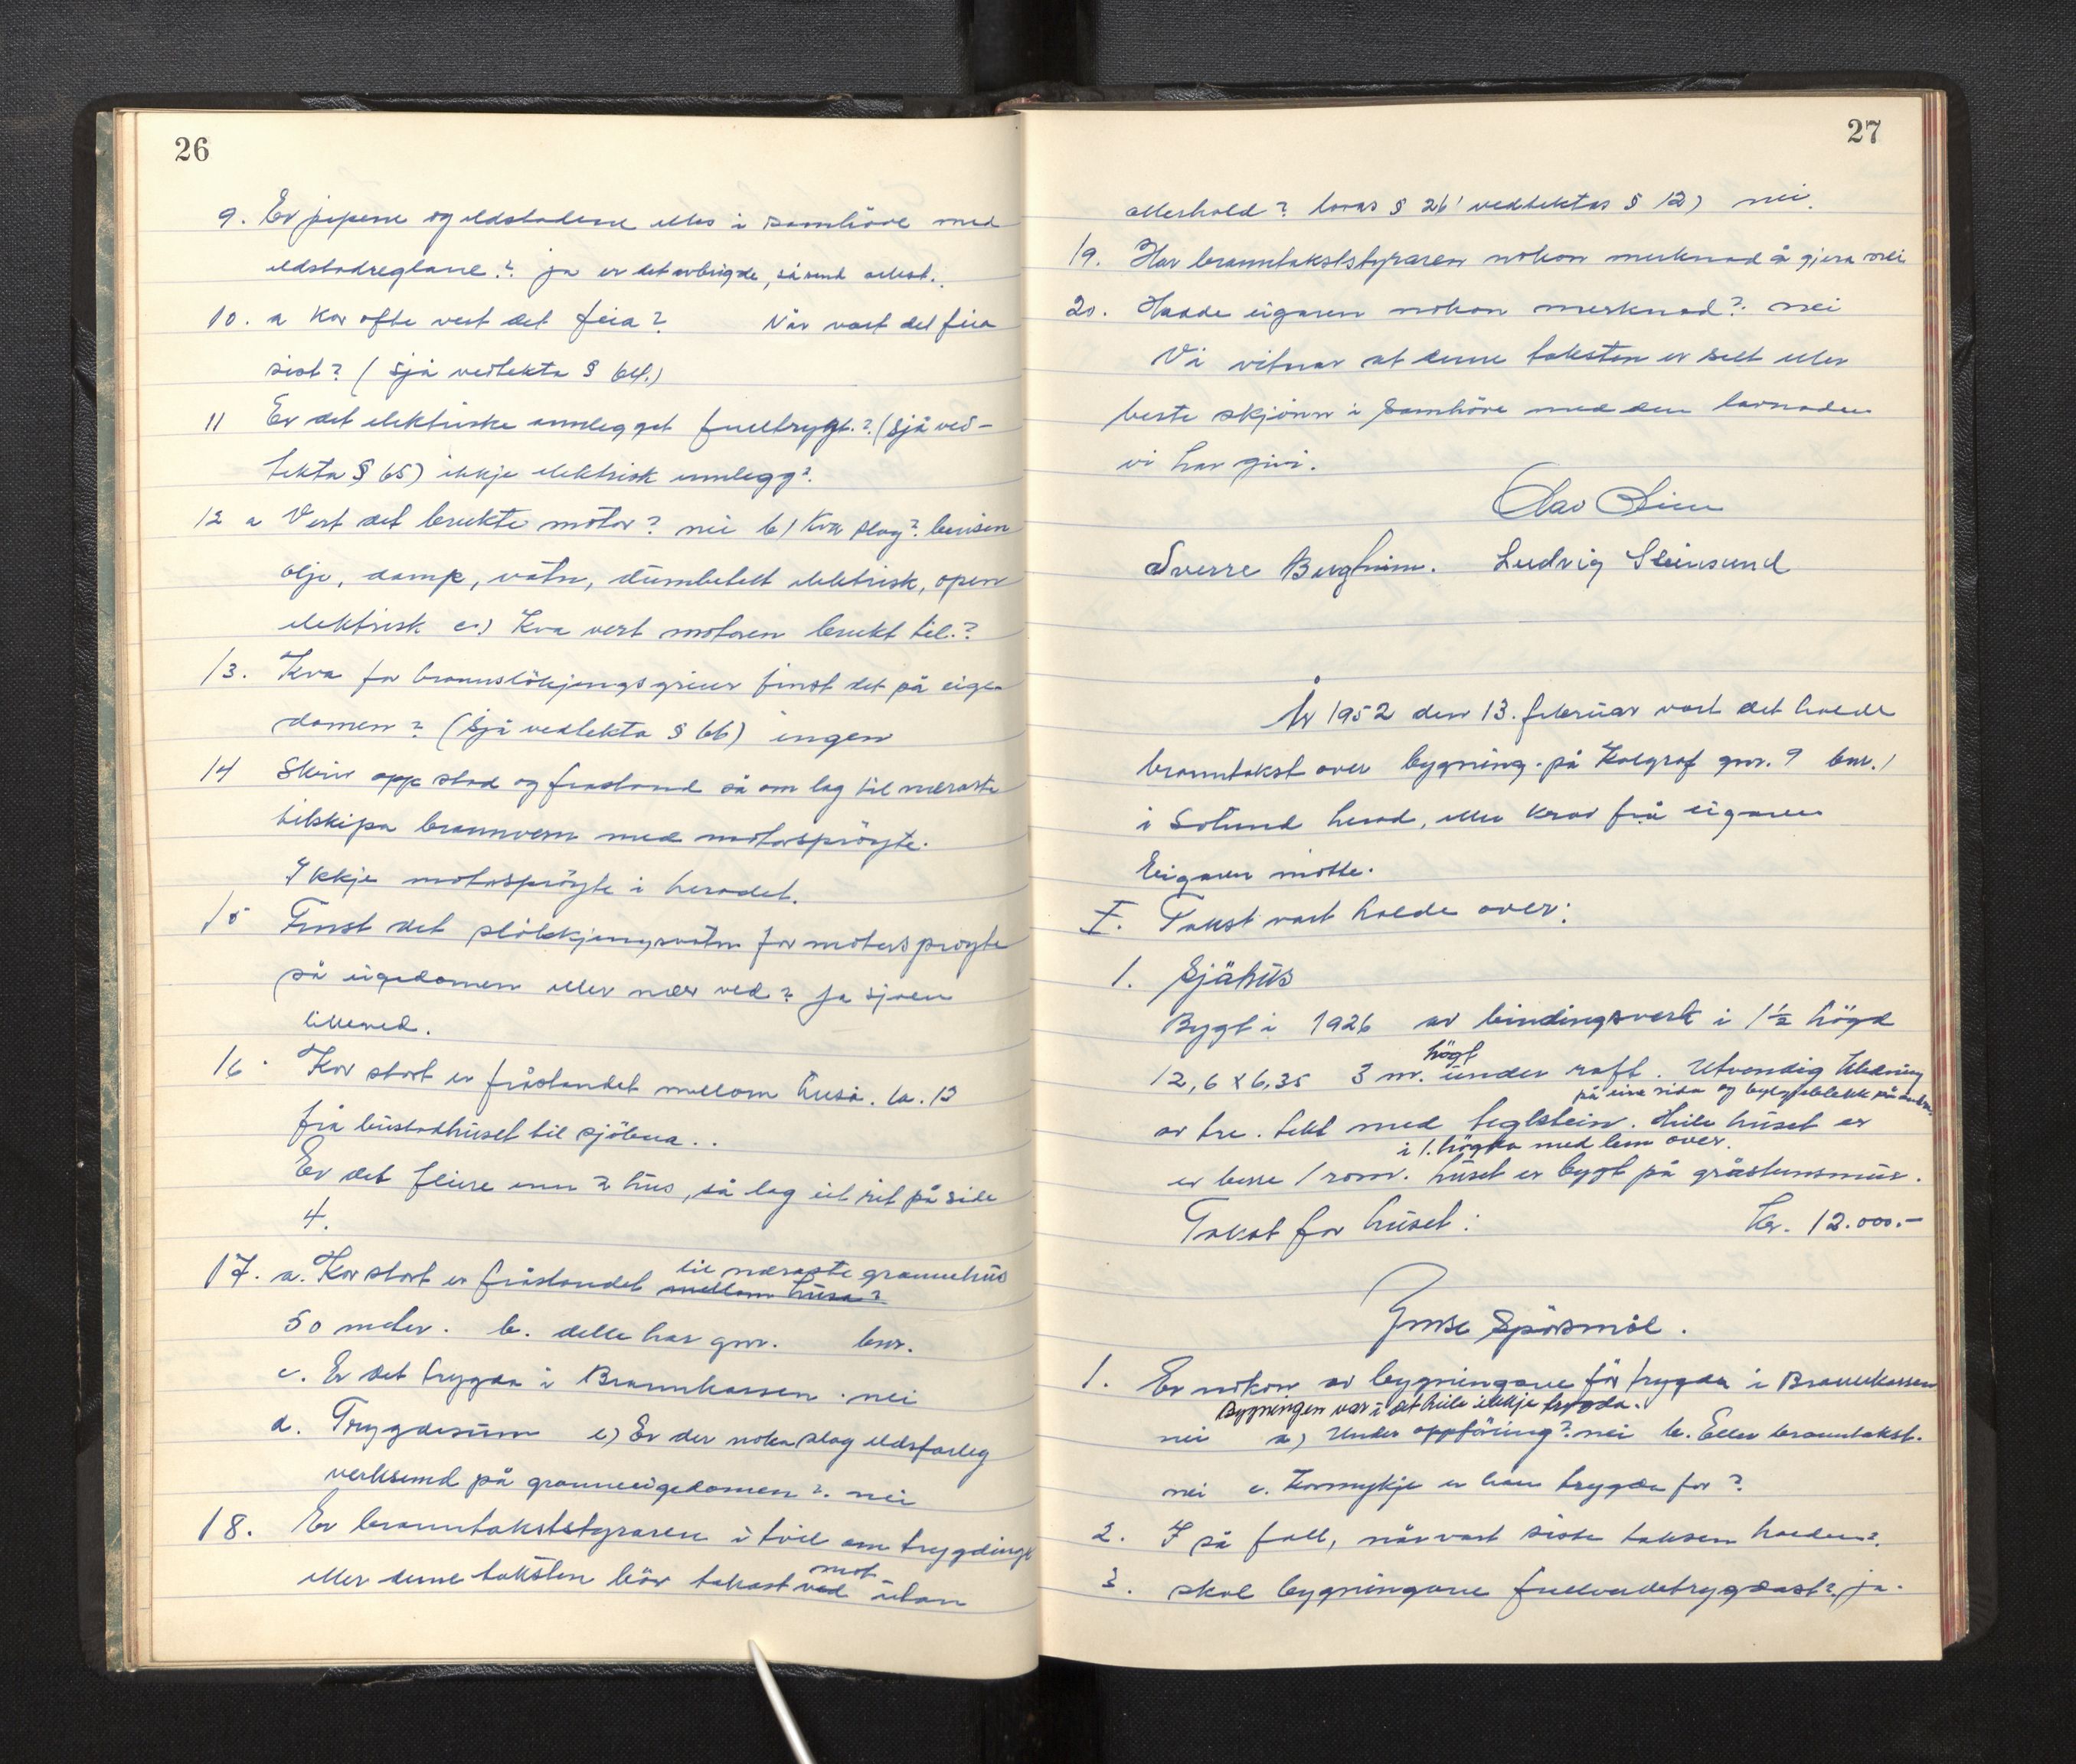 26
9. Er pipene og eldstadene elles i samhöve med
eldstadreglane? ja er det avbrigde, så send attest.
10. a Kor ofte vert det feia? Når vart det feia
sist? (Sjå vedtekta § 64.)
11 Er det elektriske annlegget fulltrygt.? (sjå ved-
tekta § 65) ikkje elektrisk innlegg?
12 a Vert det brukte motor? nei b) Kva slag? bensin
olje, damp, vatn, elektrisk, open
elektrisk c.) Kva vert motoren brukt til.?
13. Kva for brannslökjingsgreier finst det på eige-
domen? (sjå vedtekta § 66) ingen
14 Skriv opp stad og frastand så om lag til næraste
tilskipa brannvern med motorspröyte.
Ikkje motorspröyte i heradet.
15 Finst det slökkjingsvatn for motorsproyte
på eigedomen eller nær ved? Ja sjoen
like ved.
16. Kor stort er fråstandet mellom husa. ca. 12
frå bustadhuset til sjöbua..
Er det fleire enn 2 hus, så lag eit rit på side
4.
17. a. Kor stort er fråstandet mellom husa? til næraste grannehus
50 meter. b. dette har gnr. bnr.
c. Er det trygda i Brannkassen. nei
d. Trygdesum e) Er der noka slag eldsfarleg
verksemd på granneeigedomen?. nei
18. Er branntakststyraren i tvil om trygdinga
etter denne taksten bör takast ved mot utan
27
atterhald? lovas § 26' vedtektas § 12) nei.
19. Har branntakststyraren nokon merknad å gjera nei
20. Hadde eigaren nokon merknad? nei
Vi vitnar at denne taksten er sett etter
beste skjönn i samhöve med den lovnaden
vi har givi.
Sverre Bughim. Ludvig Steinsund
År 1952 den 13. februar vart det halde
branntakst over bygning. på Kolgrof gnr. 9 bnr. 1
i Solund herad, etter krav frå eigaren
Eigaren mötte.
I. Takst vart halde over:
1. Sjähus
Bygt i 1926 av bindingsverk i 1½ högd
12,6 x 6,35 3 m. högt under raft. Utvendig kledning
på eine sida og bylgjeblekk på andre.
av tre. tekt med teglstein. Heile huset er
i 1. högda med lem over.
er berre 1 rom. huset er bygt på gråsteinsmur.
Takst for huset: kr. 12.000.-
Ymse Spörsmål.
1. Er nokon av bygningane för trygda i Brannkassen
Bygningen var i det heile ikkje trygda.
nei a) Under oppföring? nei b. Etter branntakst.
nei c. Kormykje er han trygda for?
2. I så fall, når vart siste taksen halden?
3. skal bygningane fullverdetrygdast?. ja.